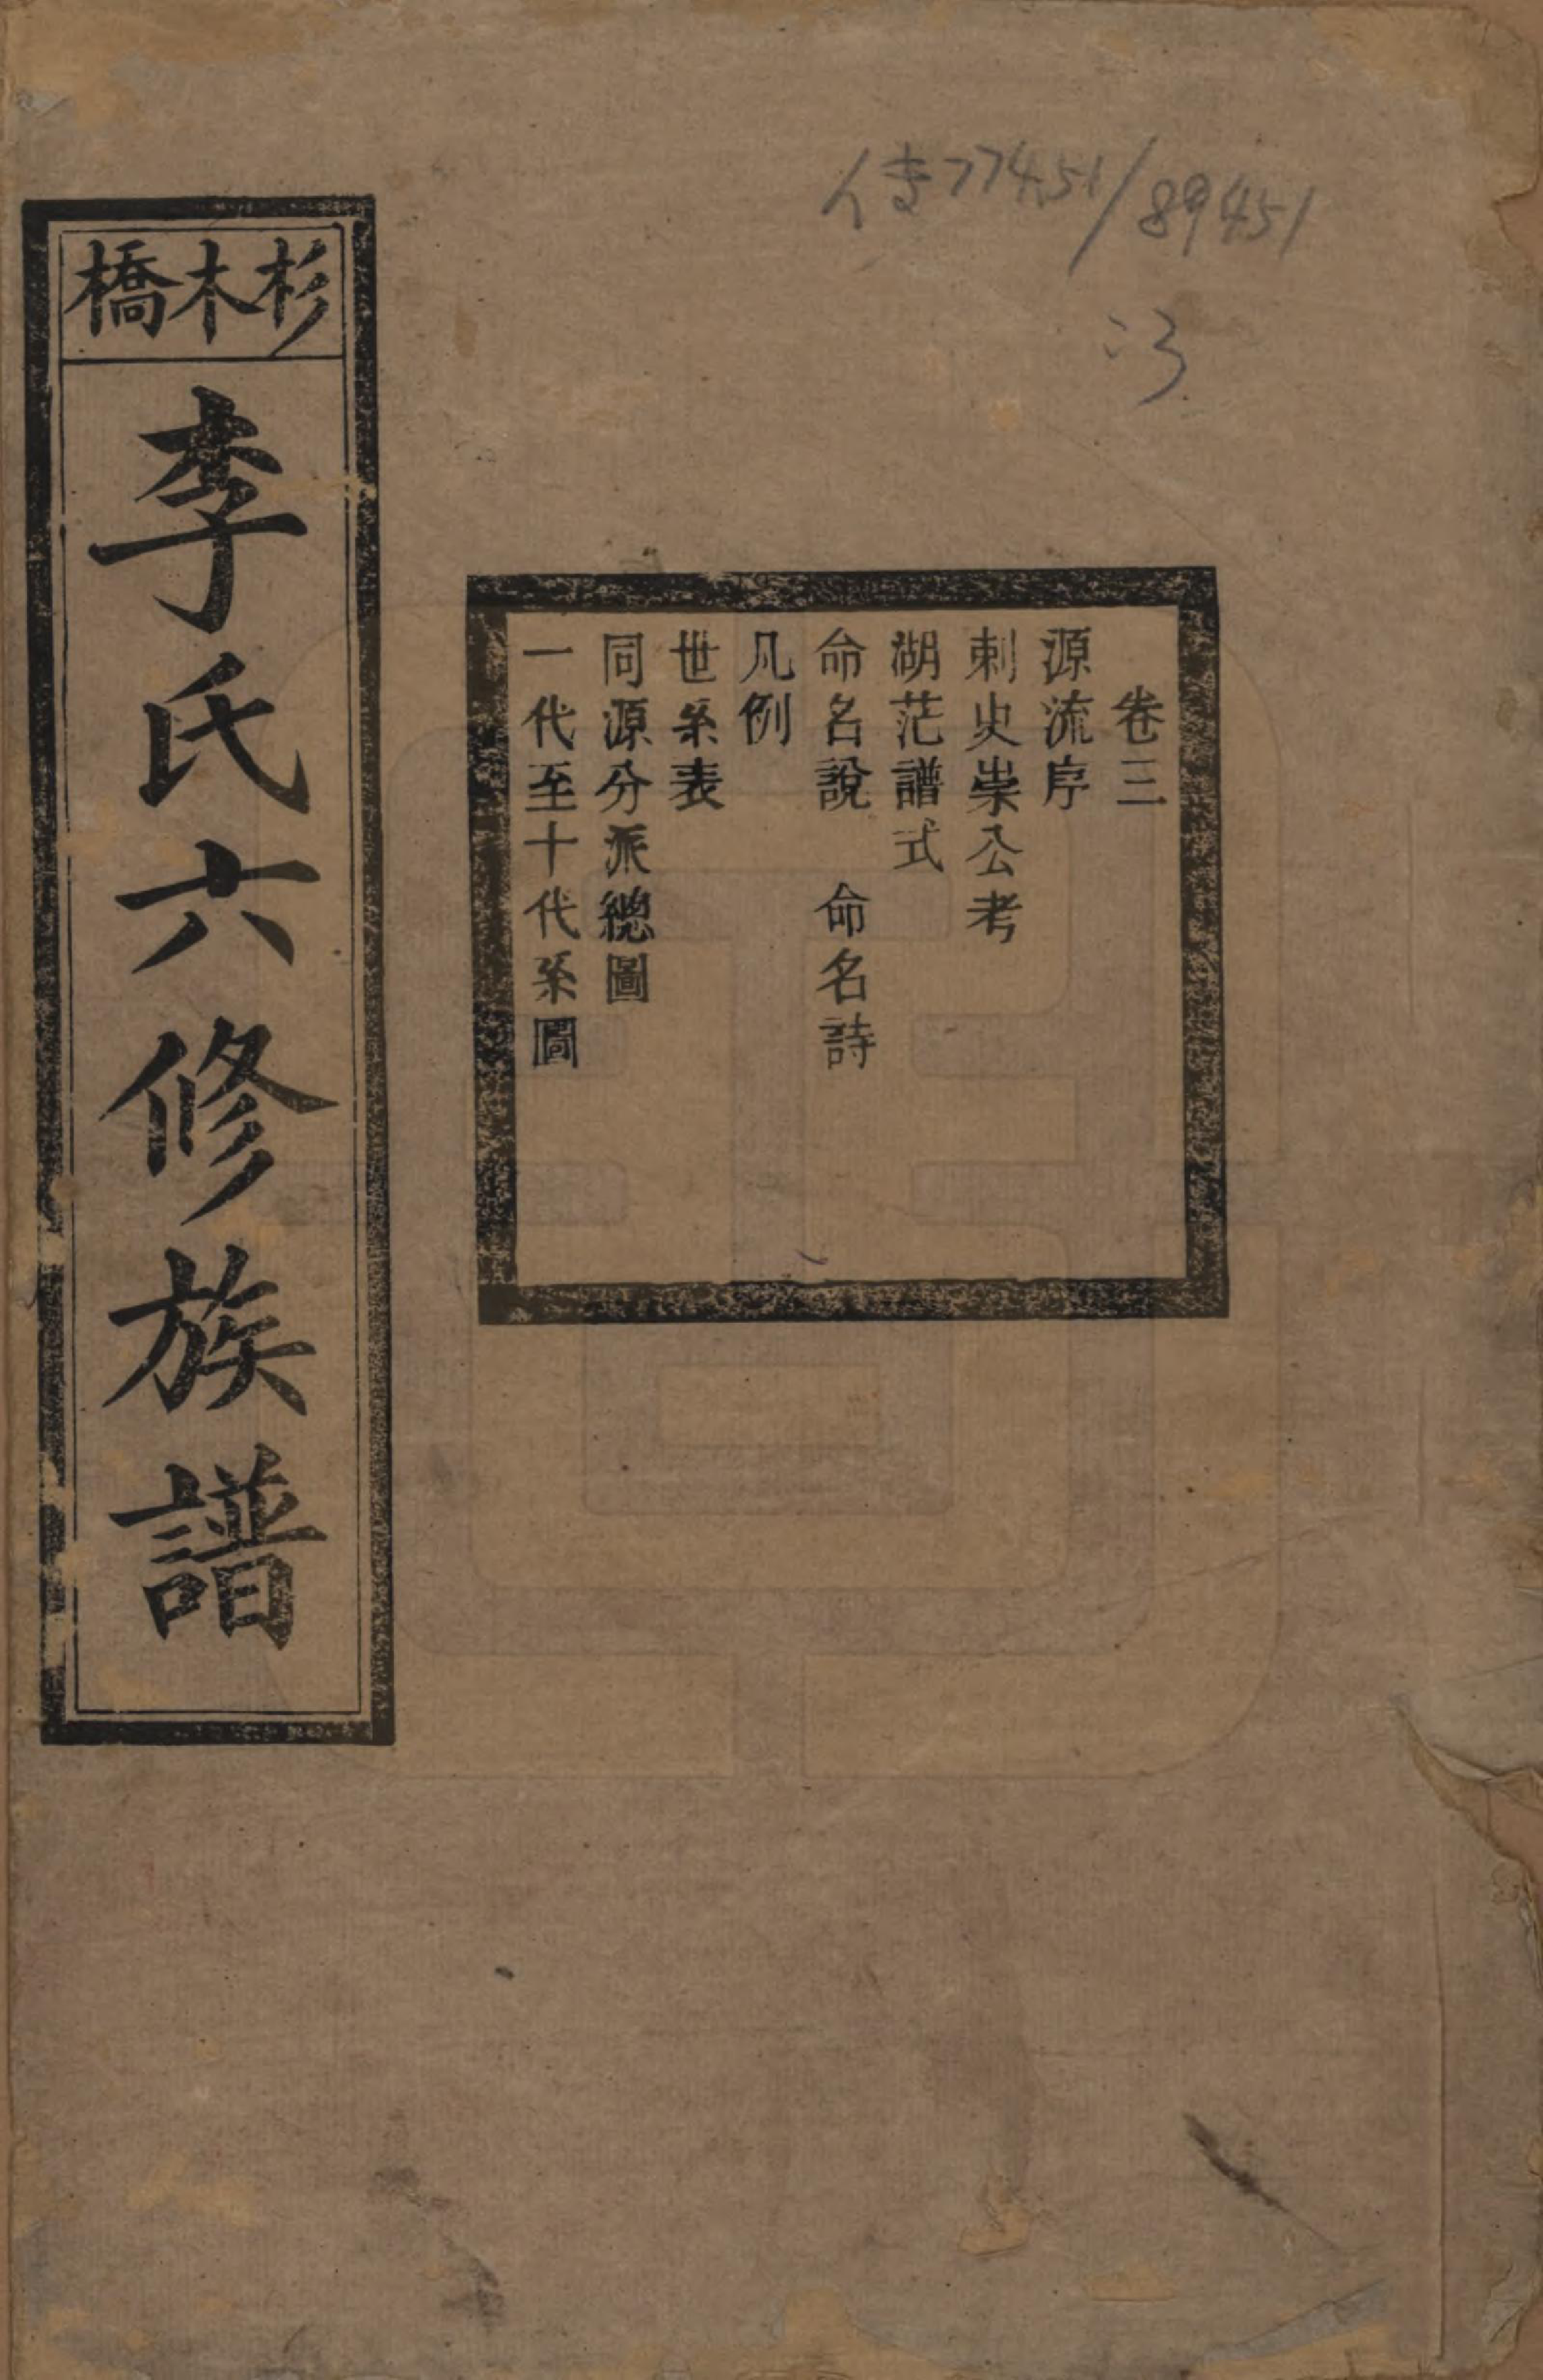 杉木橋
李氏六修族譜
卷三
源流序
刺史崇公考
湖茫譜式
命名說 命名詩
凡例
世系表
同源分派總圖
一代至十代系圖
传77451/89451
:3